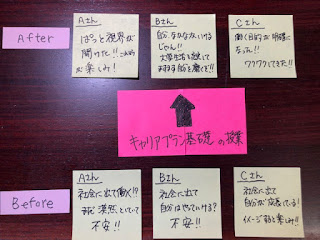 After
Aさん
ぱっと視界が
開けた!! これから
が楽しみ!
Bさん
自分、なかなかいける
じゃん!!
大学生活を通して
ますます自分を磨くぞ!!
Cさん
働く目的が明確に
なった!!
ワクワクしてきた!!
キャリアプラン基礎の授業
Before
Aさん
社会に出て働く!?
まだ漠然としていて
不安!!
Bさん
社会に出て
自分はやっていける?
不安!!
Cさん
社会に出て
自分が成長している!
イメージすると楽しみ!!